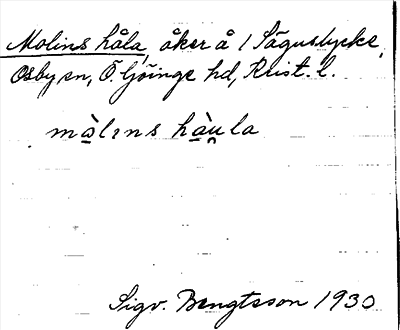 Molins håla, åker å 1 Sågustycke,
Osby sn, Ö. Göinge hd, Krist. l.
mà̱lɪns hà̱u̯la
Sigv. Bengtsson 1930